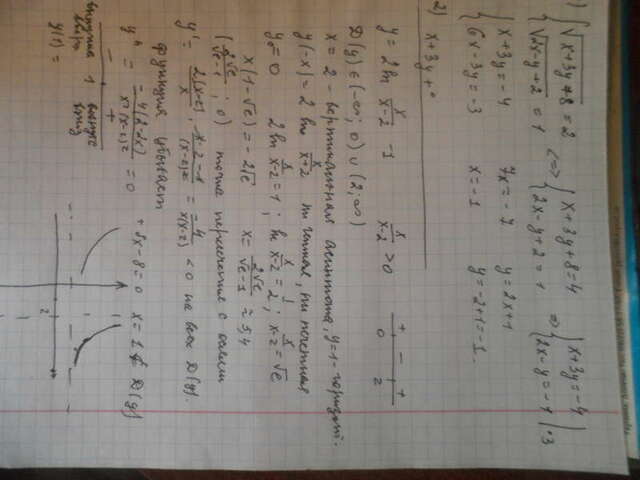 1) { √(x+3y+8) = 2 <=> { x+3y+8=4 => { x+3y=-4
{ √(2x-y+2) = 1 { 2x-y+2=1 { 2x-y=-1 |·3
{ x+3y=-4 7x=-7 y=2x+1
{ 6x-3y=-3 x=-1 y=-2+1=-1
2) x+3y+
y = 2ln x/(x-2) - 1 x/(x-2) > 0 + - +
0 2
D(y) ∈ (-∞; 0) ∪ (2; ∞)
x = 2 - вертикальная асимптота, y=-1 - горизонт.
y(-x) = 2 ln x/(x+2) ни чётная, ни нечётная
y=0 2ln x/(x-2) = 1; ln x/(x-2) = 1/2; x/(x-2) = √e
x(1-√e) = -2√e x = 2√e/(√e-1) ≈ 5,4
(2√e/(√e-1); 0) точка пересечения с осями
y' = 2(x-2)/x · (x-2-1)/(x-2)² = -4/(x(x-2)) < 0 на всех D(y).
функция убывает
y'' = -4(2-2x)/(x²(x-2)²) = 0 +8x-8=0 x=1 ∉ D(y)
- +
выпукла 1 выпукла
вверх вниз
y(1) =
2